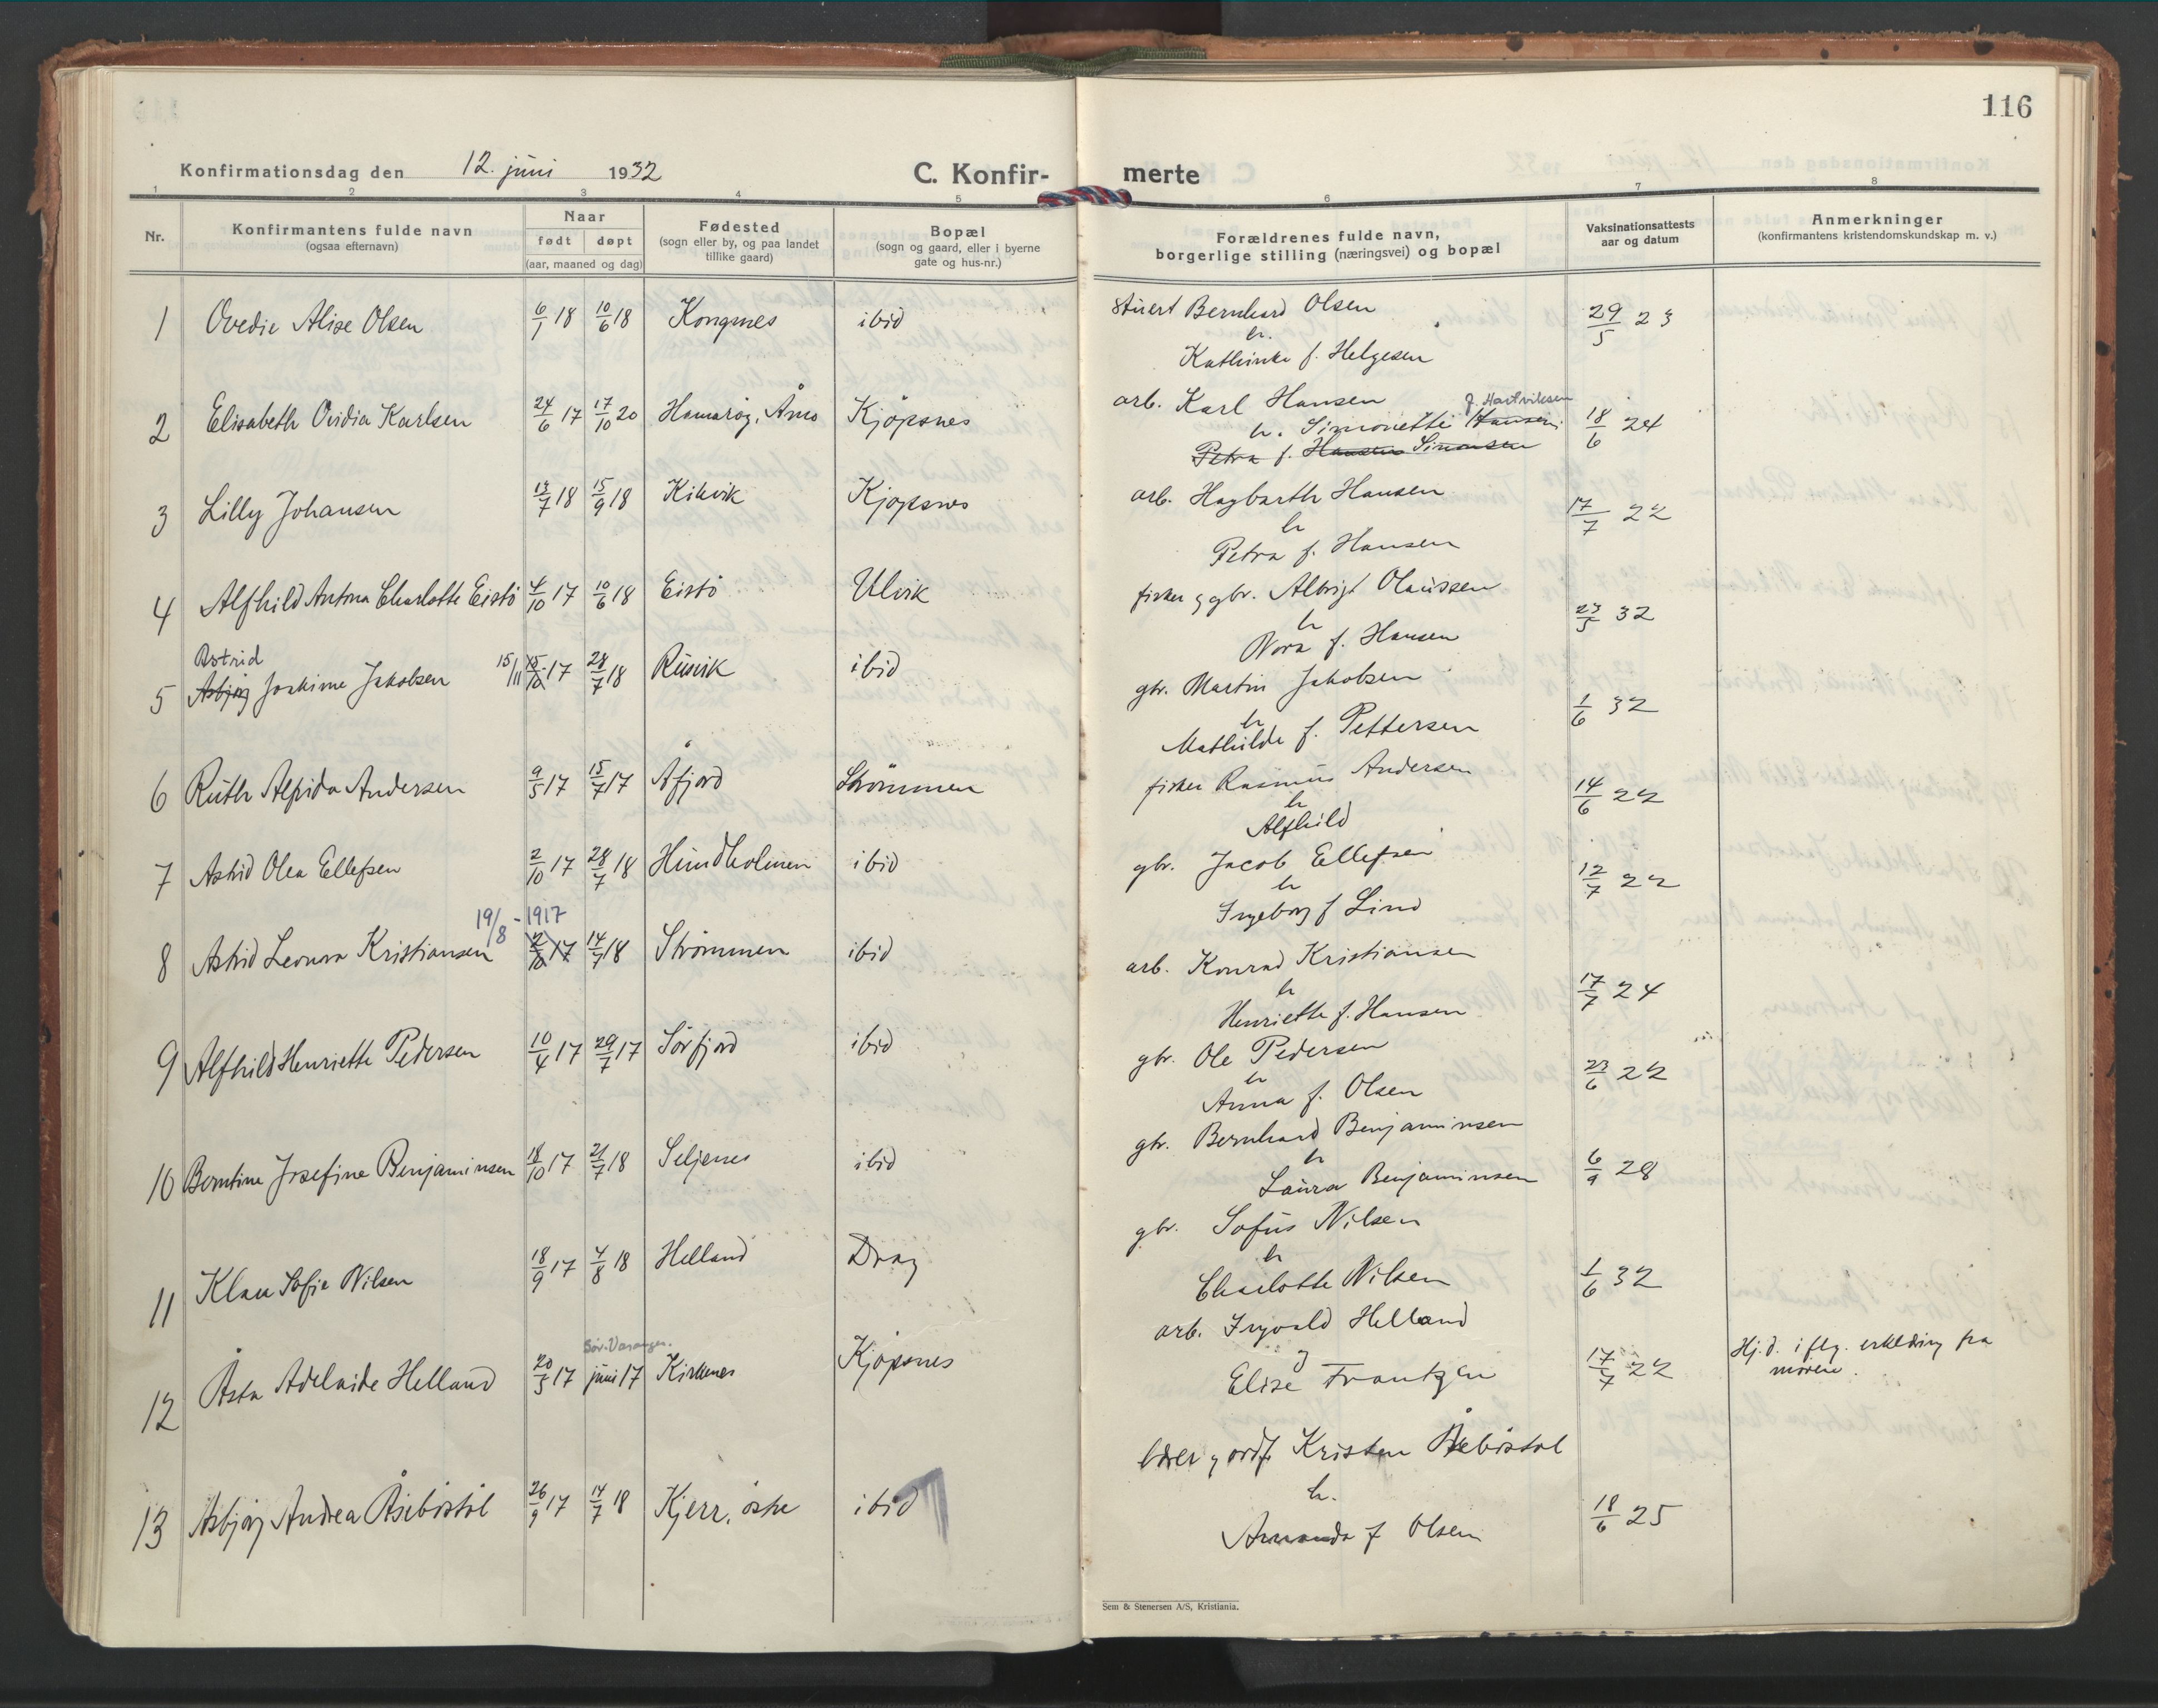 116
Konfirmationsdag den 12. juni 1932
C. Konfir-
merte
1 2 3 4 5 6 7 8
Nr.
Konfirmantens fulde navn
(ogsaa efternavn)
Naar
født døpt
(aar, maaned og dag)
Fødested
(sogn eller by, og paa landet
tillike gaard)
Bopæl
(sogn og gaard, eller i byerne
gate og hus-nr.)
Forældrenes fulde navn,
borgerlige stilling (næringsvei) og bopæl
Vaksinationsattests
aar og datum
Anmerkninger
(konfirmantens kristendomskundskap m. v.)
1 Ovedie Alise Olsen 6/1 18 10/6 18 Kongsnes ibid
stuert Bernhard Olsen
h.
Kathinka f. Helgesen
29/5 23
2 Elisabeth Ovidia Karlsen 24/6 17 17/10 20 Hamarøy, Årnes Kjøpsnes
arb. Karl Hansen
f. Hartviksen
h. Simonette Hansen
Petra f. Hansen Simonsen
18/6 24
3 Lilly Johansen 13/7 18 15/9 18 Kilvik Kjøpsnes
arb. Hagbarth Hansen
h
Petra f. Hansen
17/7 22
4 Alfhild Antona Charlotte Eistö 4/10 17 10/6 18 Eistö Ulvik
fisker og gbr. Albrigt Olaussen
h
Nora f. Hansen
23/5 32
Astrid
5 Asbjørg Joakime Jakobsen 15/11 15/10 17 28/7 18 Rusvik ibid
gbr. Martin Jakobsen
h
Mathilde f. Pettersen
1/6 32
6 Ruth Alfida Andersen 9/5 17 15/7 17 Åfjord Strömmen
fisker Rasmus Andersen
h
Alfhild
14/6 22
7 Astrid Olea Ellefsen 2/10 17 28/7 18 Hundholmen ibid
gbr. Jacob Ellefsen
h
Ingeborg f Lind
12/7 22
19/8 - 1917
8 Astrid Leonora Kristiansen 2/10 17 14/7 18 Strömmen ibid
arb. Konrad Kristiansen
h
Henriette f. Hansen
17/7 24
9 Alfhild Henriette Pedersen 10/4 17 29/7 17 Sörfjord ibid
gbr. Ole Pedersen
h
Anna f. Olsen
23/6 22
10 Berntine Josefine Benjaminsen 18/10 17 21/7 18 Seljenes ibid
gbr. Bernhard Benjaminsen
h
Laura Benjaminsen
6/9 28
11 Klau Sofie Nilsen 18/9 17 4/8 18 Helland Drag
gbr. Sofus Nilsen
h
Charlotte Nilsen
1/6 32
Sør-Varanger.
12 Åsta Adelaide Helland 20/3 17 juni 17 Kirkenes Kjøpsnes
arb. Ingvald Helland
og
Elise Frantzen
17/7 22
Hj.d. iflg. erklæring fra
moren.
13 Asbjørg Andrea Åsebøstöl 26/9 17 14/7 18 Kjerr, östre ibid
lærer og ordf. Kristen Åsebøstöl
h.
Amanda f Olsen
18/6 25
Sem & Stenersen A/S, Kristiania.